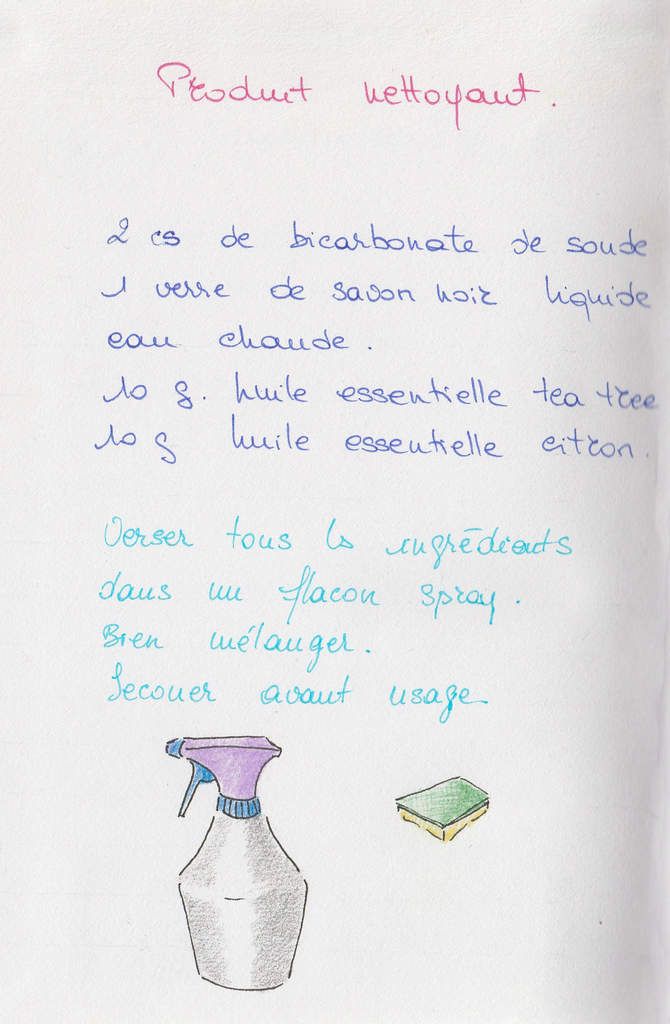 Produit nettoyant.
2 cs de bicarbonate de soude
1 verre de savon noir liquide
eau chaude.
10 g. huile essentielle tea tree
10 g huile essentielle citron.
Verser tous les ingrédients
dans un flacon spray.
Bien mélanger.
Secouer avant usage